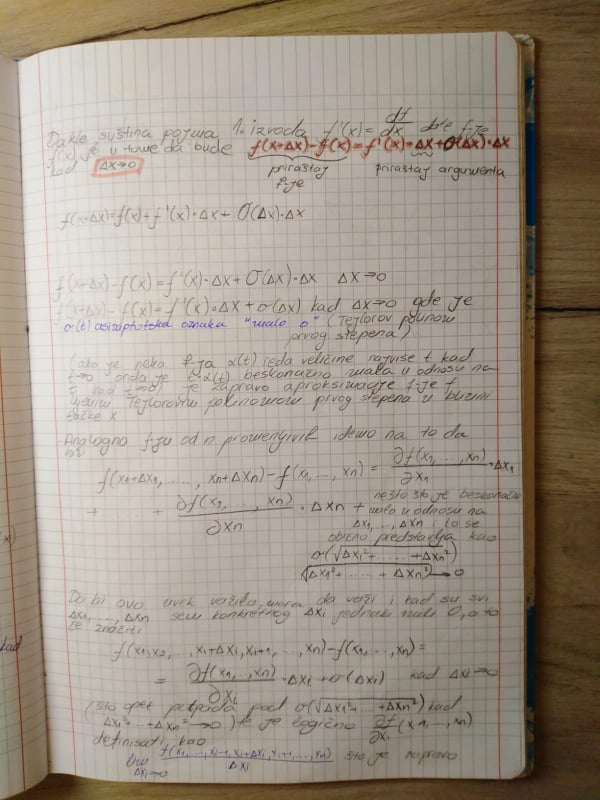 Dakle suština pojma 1. izvoda f'(x) = df/dx date f-je
f(x) je u tome da bude f(x+Δx)-f(x)=f'(x)·Δx+O(Δx)·Δx
kad Δx→0 priraštaj f-je priraštaj argumenta
f(x+Δx)=f(x)+f'(x)·Δx+O(Δx)·Δx
f(x+Δx)-f(x)=f'(x)·Δx+O(Δx)·Δx Δx→0
f(x+Δx)-f(x)=f'(x)·Δx+o(Δx) kad Δx→0 gde je
o(t) asimptotska oznaka "malo o" (Tejlorov polinom
prvog stepena)
(ako je neka f-ja α(t) reda veličine najviše t, kad
t→0 onda je t·α(t) beskonačno mala u odnosu na
t kad t→0) je zapravo aproksimacija f-je f
Tejlorovim polinomom prvog stepena u blizini
tačke x
Analogno f-ju od n promenjivih idemo na to da
f(x1+Δx1, ....., xn+Δxn)-f(x1, ..., xn) = ∂f(x1, ..., xn)/∂x1 ·Δx1
+ + ∂f(x1, ..., xn)/∂xn · Δxn + nešto što je beskonačno
malo u odnosu na
Δx1, ..., Δxn i to se
obično predstavlja kao
o(√Δx1²+ ..... +Δxn²)
√Δx1²+ ..... + Δxn² → 0
Da bi ovo uvek važilo, mora da važi i kad su svi
Δx1, ..., Δxn sem konkretnog Δxi jednaki nuli 0, a to
će značiti
f(x1,x2, ..., xi+Δxi, xi+1, ..., xn)-f(x1, ..., xn)=
= ∂f(x1, ..., xn)/∂xi ·Δxi+o(Δxi) kad Δxi→0
(što opet potpada pod o(√Δx1²+...+Δxn²) kad
Δx1²+...+Δxn²→0) te je logično ∂f/∂xi (x1, ..., xn)
definisati kao
lim Δxi→0 f(x1, ..., xi-1, xi+Δxi, xi+1, ..., xn)/Δxi što je zapravo
kad